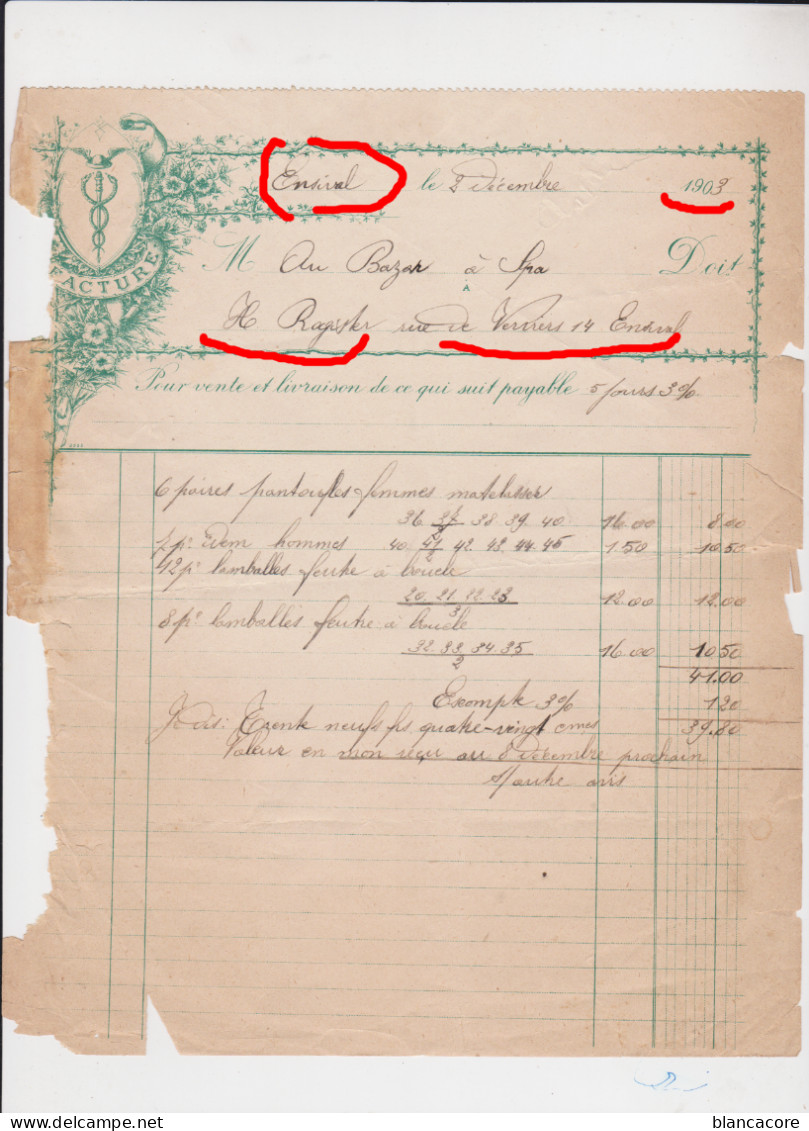 Ensival le 2 Décembre 1903
FACTURE
M Au Bazar à Spa Doit
A
H Ragister rue de Verviers 14 Ensival
Pour vente et livraison de ce qui suit payable 5 jours 3%
6 paires pantoufles femmes matelasser
36. 37. 38. 39. 40. 16.00 8.00
2
7 pr idem hommes 40. 41. 42. 43. 44. 45 1.50 10.50
2
12 pr lamballes feutre à boucle
20. 21. 22. 23 12.00 12.00
3
8 pr lamballes feutre à boucle
32. 33. 34. 35 16.00 10.50
2
41.00
Escompte 3% 1.20
Je dis: Trente neufs frs quatre-vingt cmes 39.80
Valeur en mon reçu au 8 Décembre prochain
s/autre avis
delcampe.net
blancacore